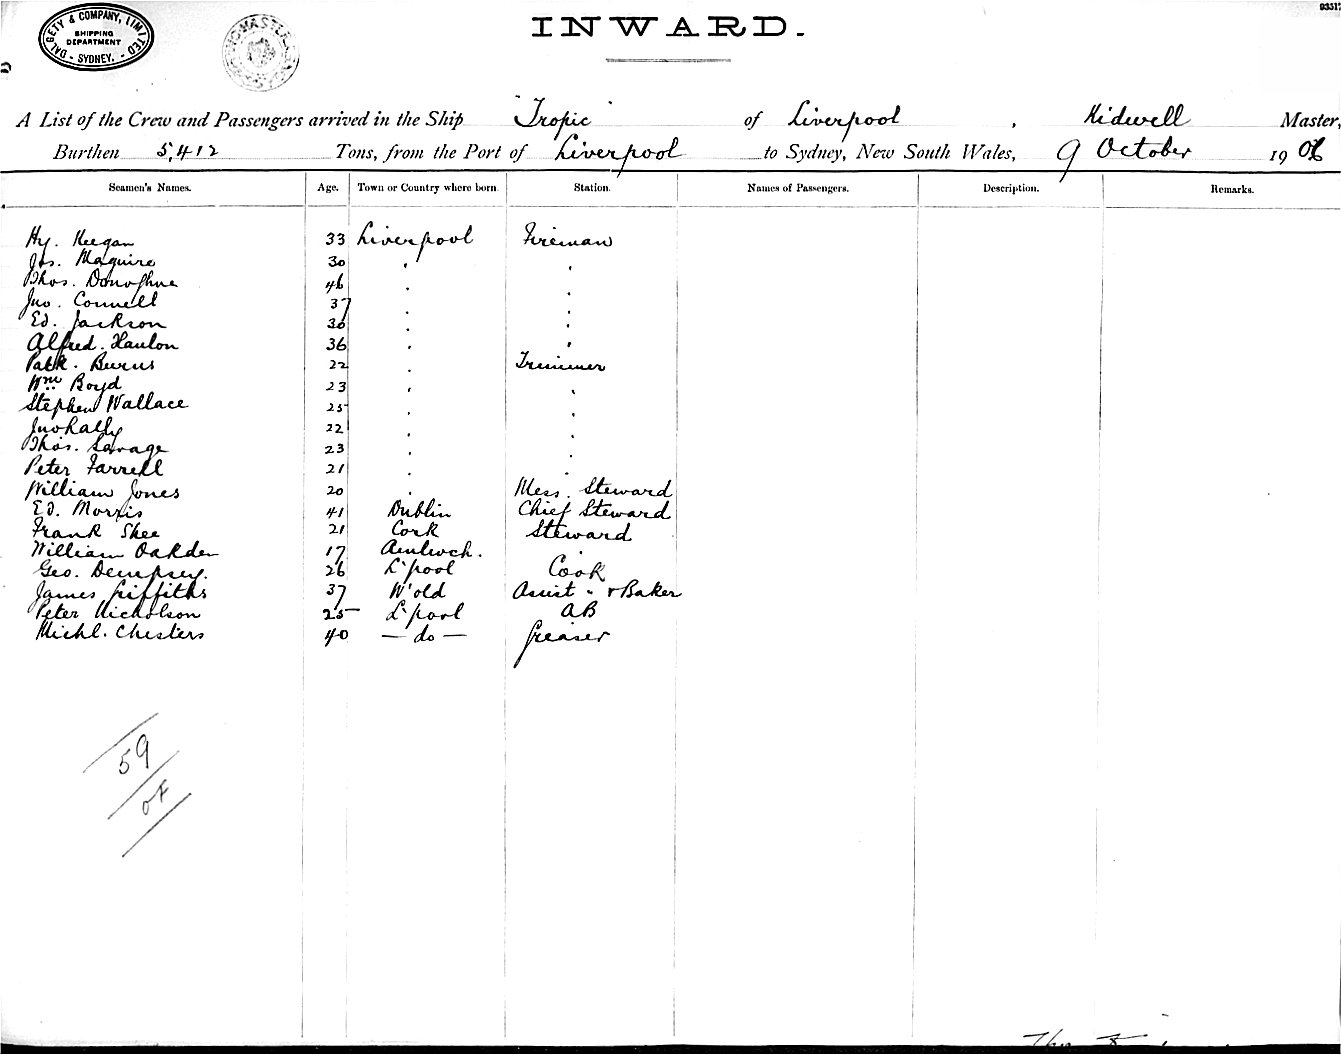 DALGETY & COMPANY, LIMITED
SHIPPING
DEPARTMENT
SYDNEY.
INWARD.
A List of the Crew and Passengers arrived in the Ship "Tropic" of Liverpool, Kidwell Master,
Burthen 5,412 Tons, from the Port of Liverpool to Sydney, New South Wales, 9 October 1906
Seamen's Names. Age. Town or Country where born. Station. Names of Passengers. Description. Remarks.
Hy. Keegan 33 Liverpool Fireman
Jas. Maguire 30 " "
Thos. Donoghue 46 " "
Jno. Connell 37 " "
Ed. Jackson 30 " "
Alfred. Hanlon 36 " "
Patk. Burns 22 " Trimmer
Wm Boyd 23 " "
Stephen Wallace 25 " "
Jno Rally 22 " "
Thos. Savage 23 " "
Peter Farrell 21 " "
William Jones 20 " Mess. Steward
Ed. Morris 41 Dublin Chief Steward
Frank Shee 21 Cork Steward
William Oakden 17 Amlwch.
Geo. Dempsey. 26 L'pool Cook
James Griffiths 37 W'old Assist " & Baker
Peter Nicholson 25 L'pool AB
Michl. Chesters 40 — do — Greaser
59